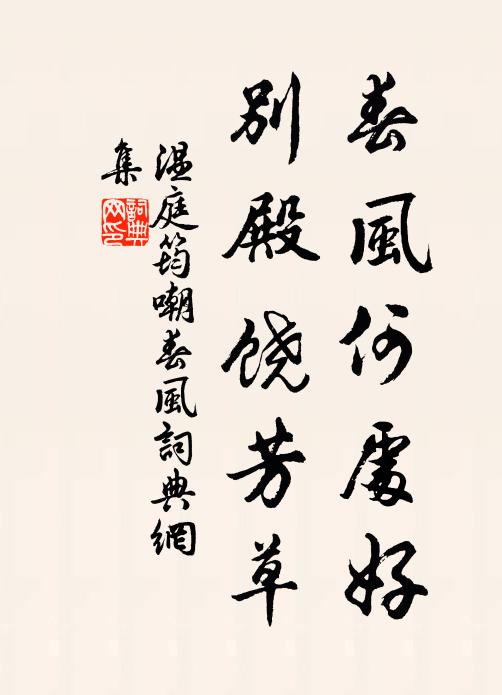 春風何處好
別殿饒芳草
温庭筠嘲春風詞典網
集
詞典網印